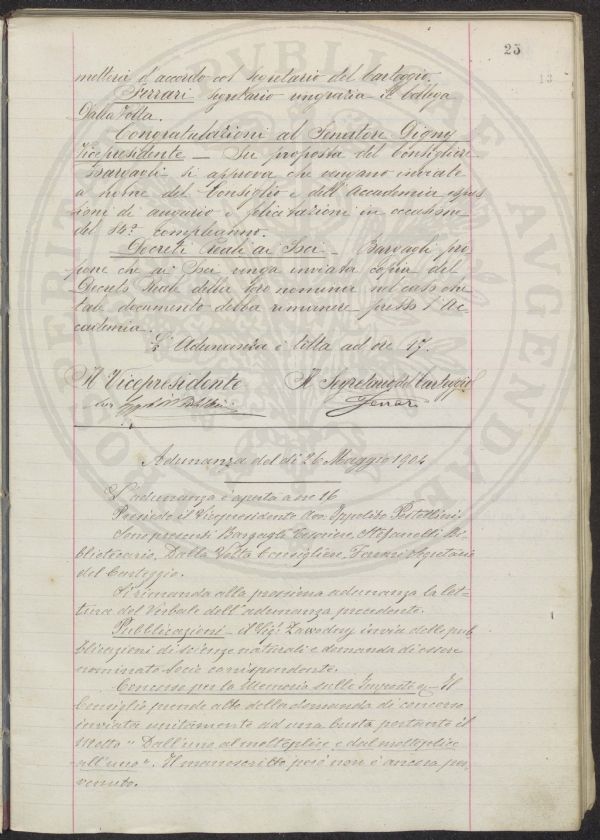 25
13
mettersi d'accordo col Segretario del Carteggio.
Ferrari Segretario ringrazia il collega
Dalla Volta.
Congratulazioni al Senatore Digny
Vicepresidente – Su proposta del Consigliere
Bargagli si approva che vengano inviate
a nome del Consiglio e dell'Accademia espres
sioni di augurio e felicitazioni in occasione
del 84º compleanno.
Decreti Reali ai Soci – Bargagli pro
pone che ai Soci venga inviata copia del
Decreto Reale della loro nomina nel caso che
tale documento debba rimanere presso l'Ac
cademia.
L'Adunanza è tolta ad ore 17.
Il Vicepresidente Il Segretario del Carteggio
Ferrari
Adunanza del dì 26 Maggio 1904
L'adunanza è aperta a ore 16
Presiede il Vicepresidente Avv. Ippolito Pestellini.
Sono presenti Bargagli Tesoriere, Stefanelli Bi
bliotecario, Dalla Volta Consigliere, Ferrari Segretario
del Carteggio.
Si rimanda alla prossima adunanza la let-
tura del Verbale dell'adunanza precedente.
Pubblicazioni – il Sig. Zawodny invia delle pub
blicazioni di scienze naturali e domanda di essere
nominato Socio corrispondente.
Concorso per la Memoria sulle Imposte – Il
Consiglio prende atto della domanda di concorso
inviata unitamente ad una busta portante il
Motto "Dall'uno al molteplice e dal molteplice
all'uno". Il manoscritto però non è ancora per
venuto.
HONORIBUS
PUBLICAE
AUGENDAE